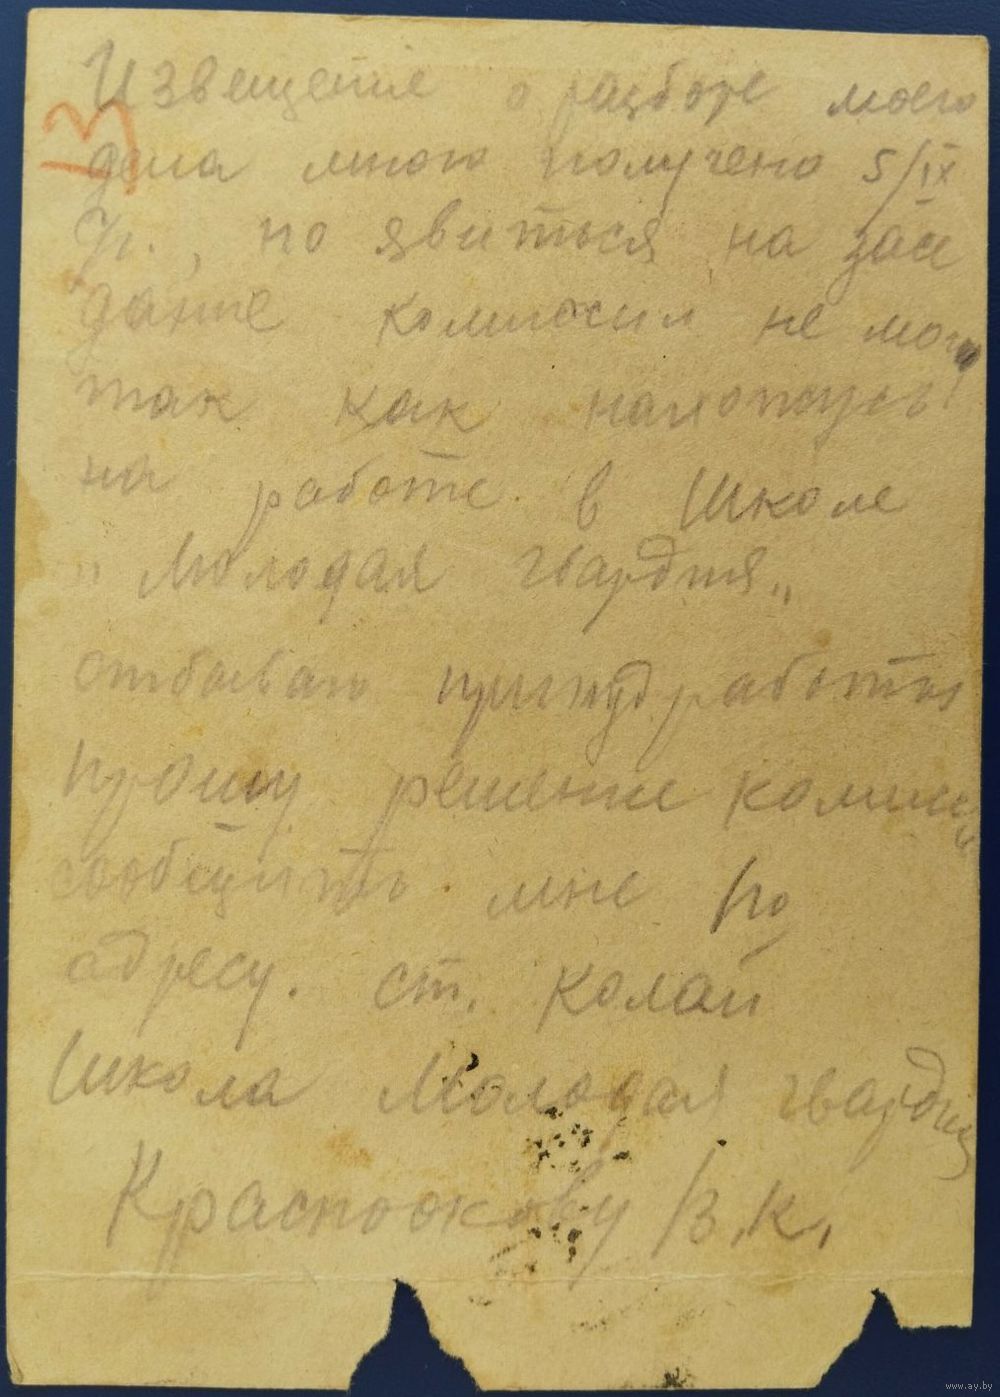 Извещение о разборе моего
13
дела мною получено 5/IX
, но явиться на засе
дание комиссии не могу
так как нахожусь
на работе в Школе
„Молодая гвардия„
отбываю принудработы
прошу решение комисс
сообщить мне по
адресу. ст. Колай
Школа Молодая гвардия
В.К.
www.ay.by